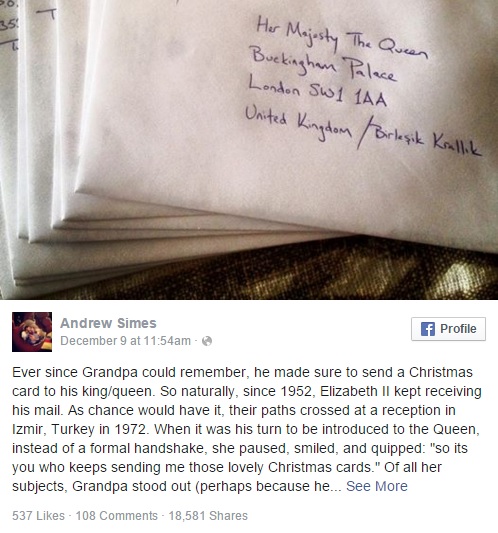 35
T
Her Majesty The Queen
Buckingham Palace
London SW1 1AA
United Kingdom / Birleşik Krallık
Andrew Simes
December 9 at 11:54am ·
Profile
Ever since Grandpa could remember, he made sure to send a Christmas
card to his king/queen. So naturally, since 1952, Elizabeth II kept receiving
his mail. As chance would have it, their paths crossed at a reception in
Izmir, Turkey in 1972. When it was his turn to be introduced to the Queen,
instead of a formal handshake, she paused, smiled, and quipped: "so its
you who keeps sending me those lovely Christmas cards." Of all her
subjects, Grandpa stood out (perhaps because he... See More
537 Likes · 108 Comments · 18,581 Shares